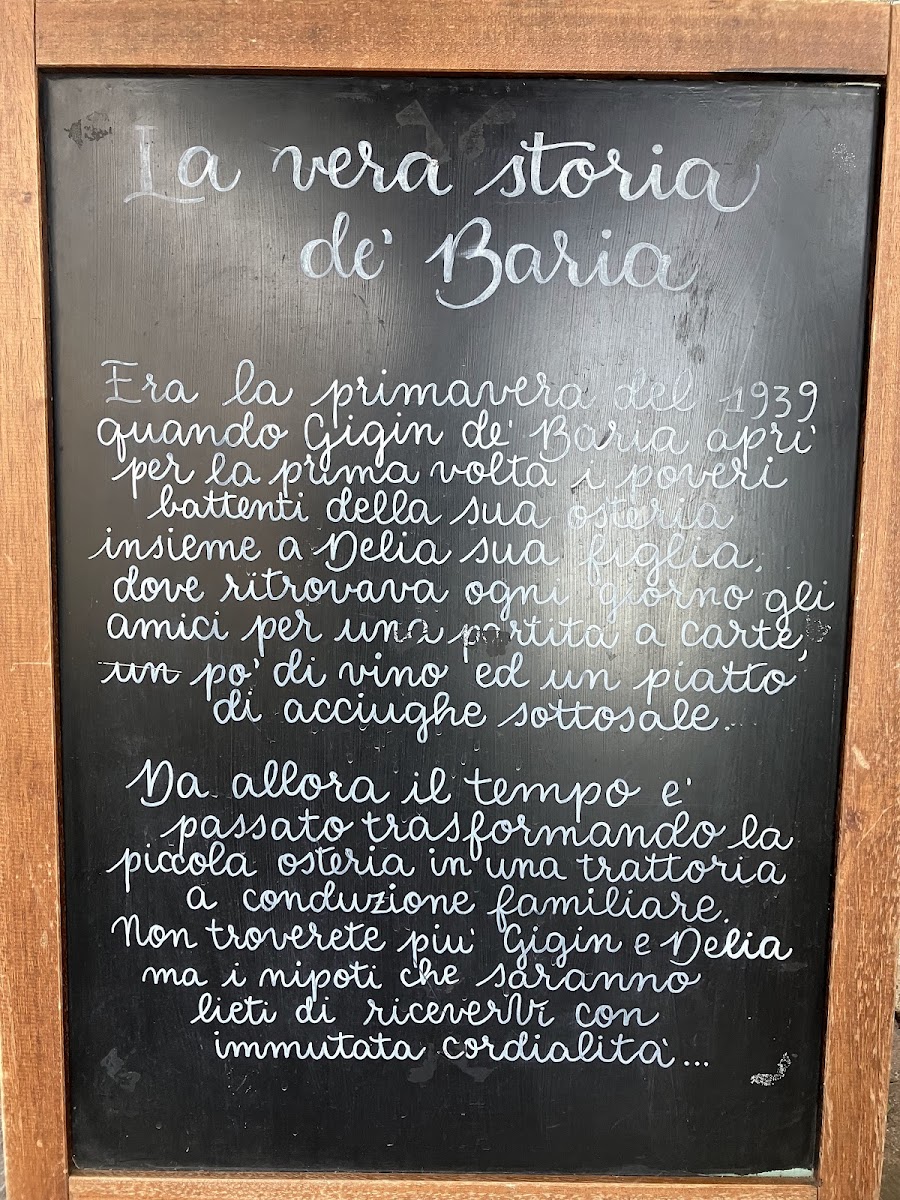 La vera storia
de' Baria
Era la primavera del 1939
quando Gigin de' Baria aprì
per la prima volta i poveri
battenti della sua osteria
insieme a Delia sua figlia,
dove ritrovava ogni giorno gli
amici per una partita a carte,
un po' di vino ed un piatto
di acciughe sottosale...
Da allora il tempo e'
passato trasformando la
piccola osteria in una trattoria
a conduzione familiare.
Non troverete piu' Gigin e Delia
ma i nipoti che saranno
lieti di ricevervi con
immutata cordialità...